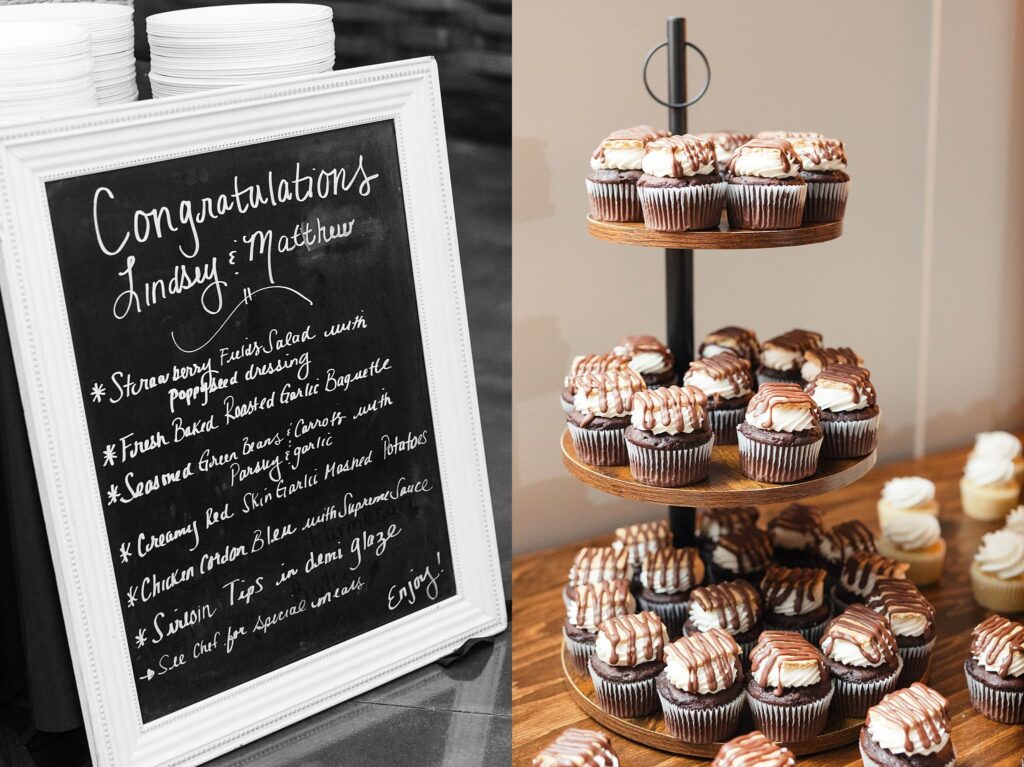 Congratulations
Lindsey & Matthew
* Strawberry Fields Salad with
poppyseed dressing
* Fresh Baked Roasted Garlic Baguette
* Seasoned Green Beans & Carrots with
Parsley & garlic
* Creamy Red Skin Garlic Mashed Potatoes
* Chicken Cordon Bleu with Supreme Sauce
* Sirloin Tips in demi glaze
→ See Chef for special meals
Enjoy!